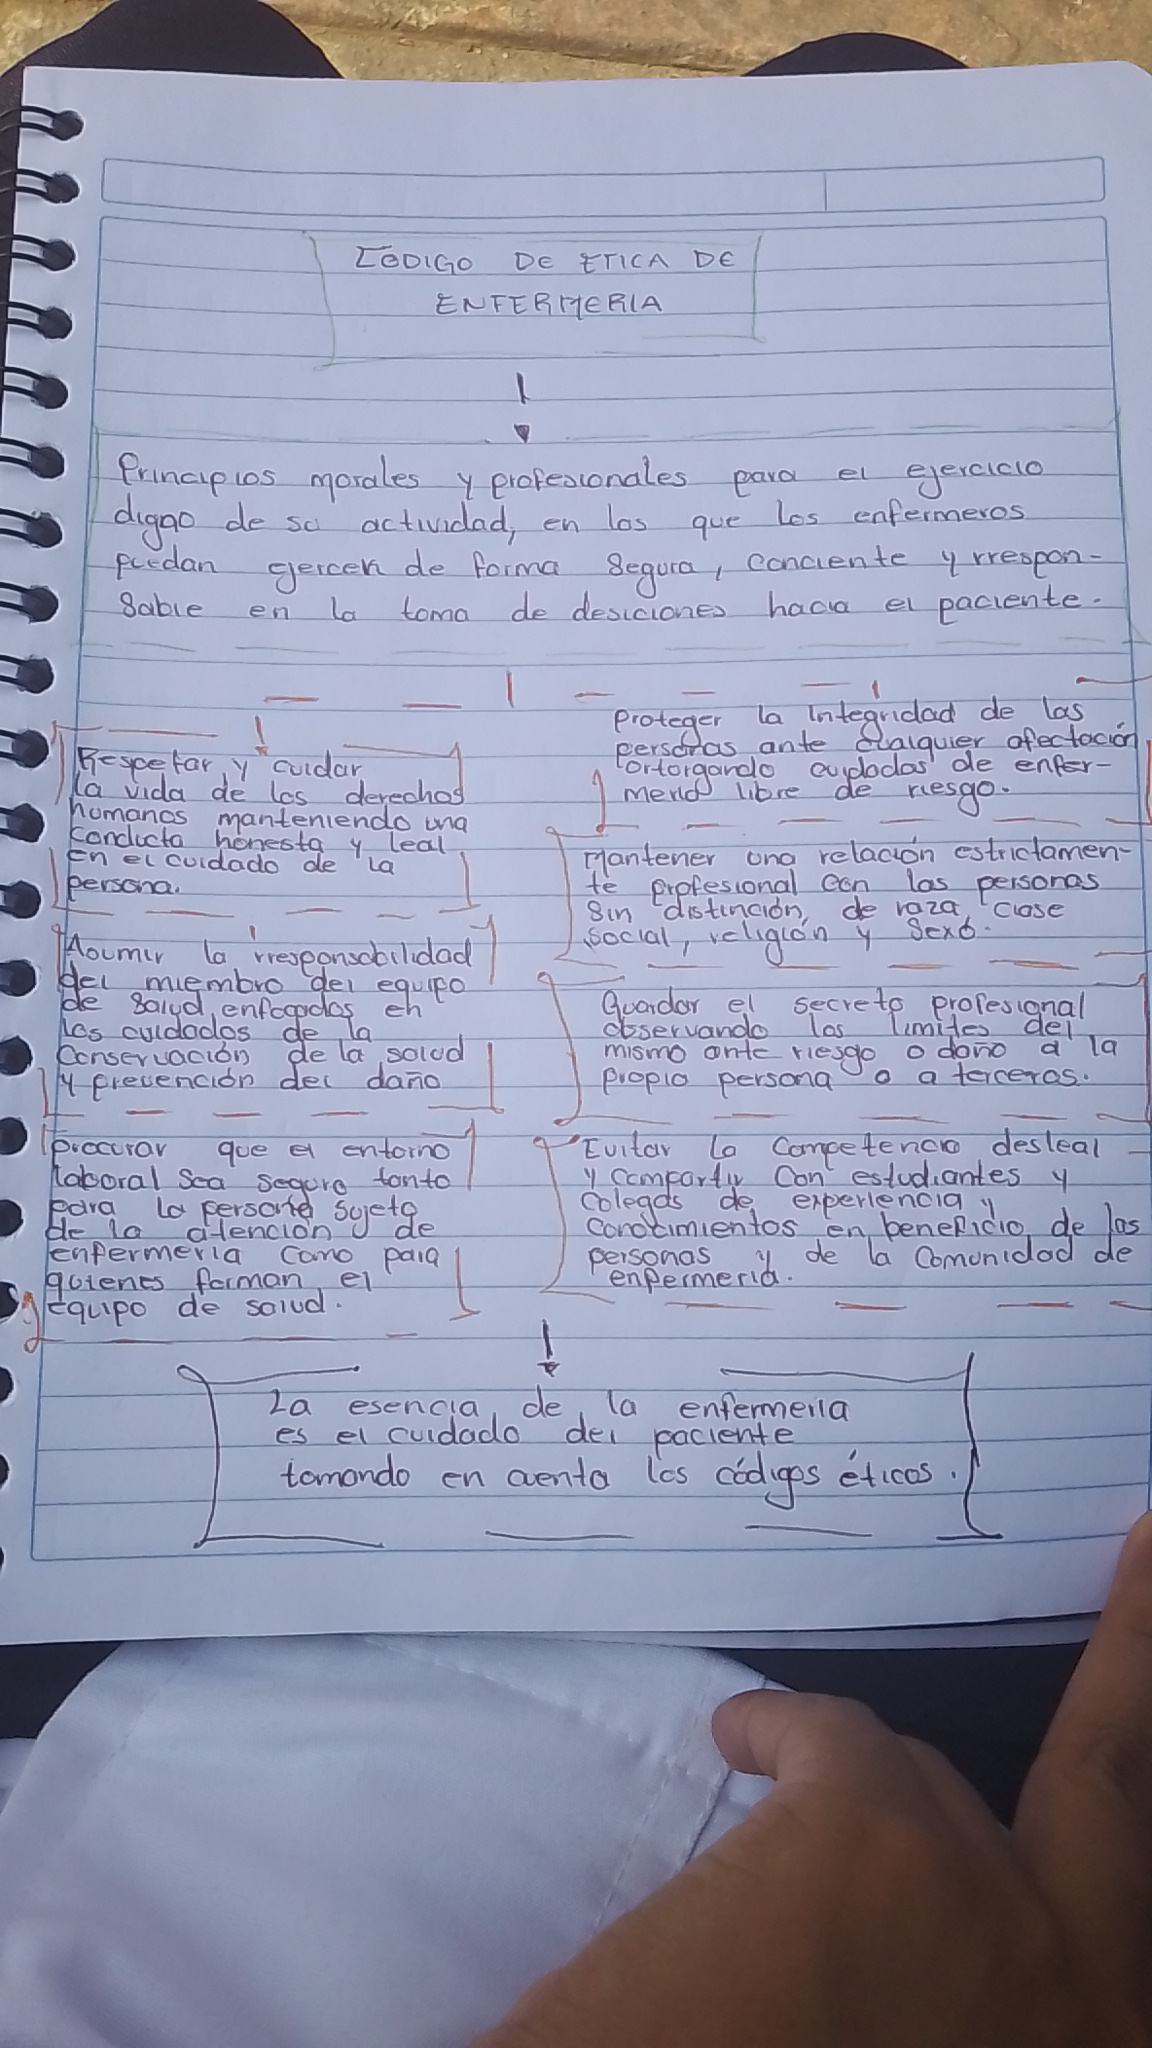 CODIGO DE ETICA DE
ENFERMERIA
Principios morales y profesionales para el ejercicio
digno de su actividad, en los que los enfermeros
puedan ejercen de forma segura, conciente y rrespon-
sable en la toma de desiciones hacia el paciente.
Respetar y cuidar
la vida de los derechos
humanos manteniendo una
conducta honesta y leal
en el cuidado de la
persona.
Asumir la rresponsabilidad
del miembro del equipo
de salud, enfocados en
los cuidados de la
conservación de la salud
y prevención del daño
procurar que el entorno
laboral sea seguro tanto
para la persona sujeto
de la atención de
enfermeria como para
quienes forman el
equipo de salud.
proteger la integridad de las
personas ante cualquier afectación
ortorgando cuidados de enfer-
meria libre de riesgo.
Mantener una relación estrictamen-
te profesional con las personas
sin distinción, de raza, clase
social, religión y sexo.
Guardar el secreto profesional
observando los limites del
mismo ante riesgo o daño a la
propio persona o a terceros.
Evitar la competencia desleal
y compartir con estudiantes y
colegas de experiencia y
conocimientos en beneficio de las
personas y de la comunidad de
enfermeria.
La esencia de la enfermeria
es el cuidado del paciente
tomando en cuenta los códigos éticos.